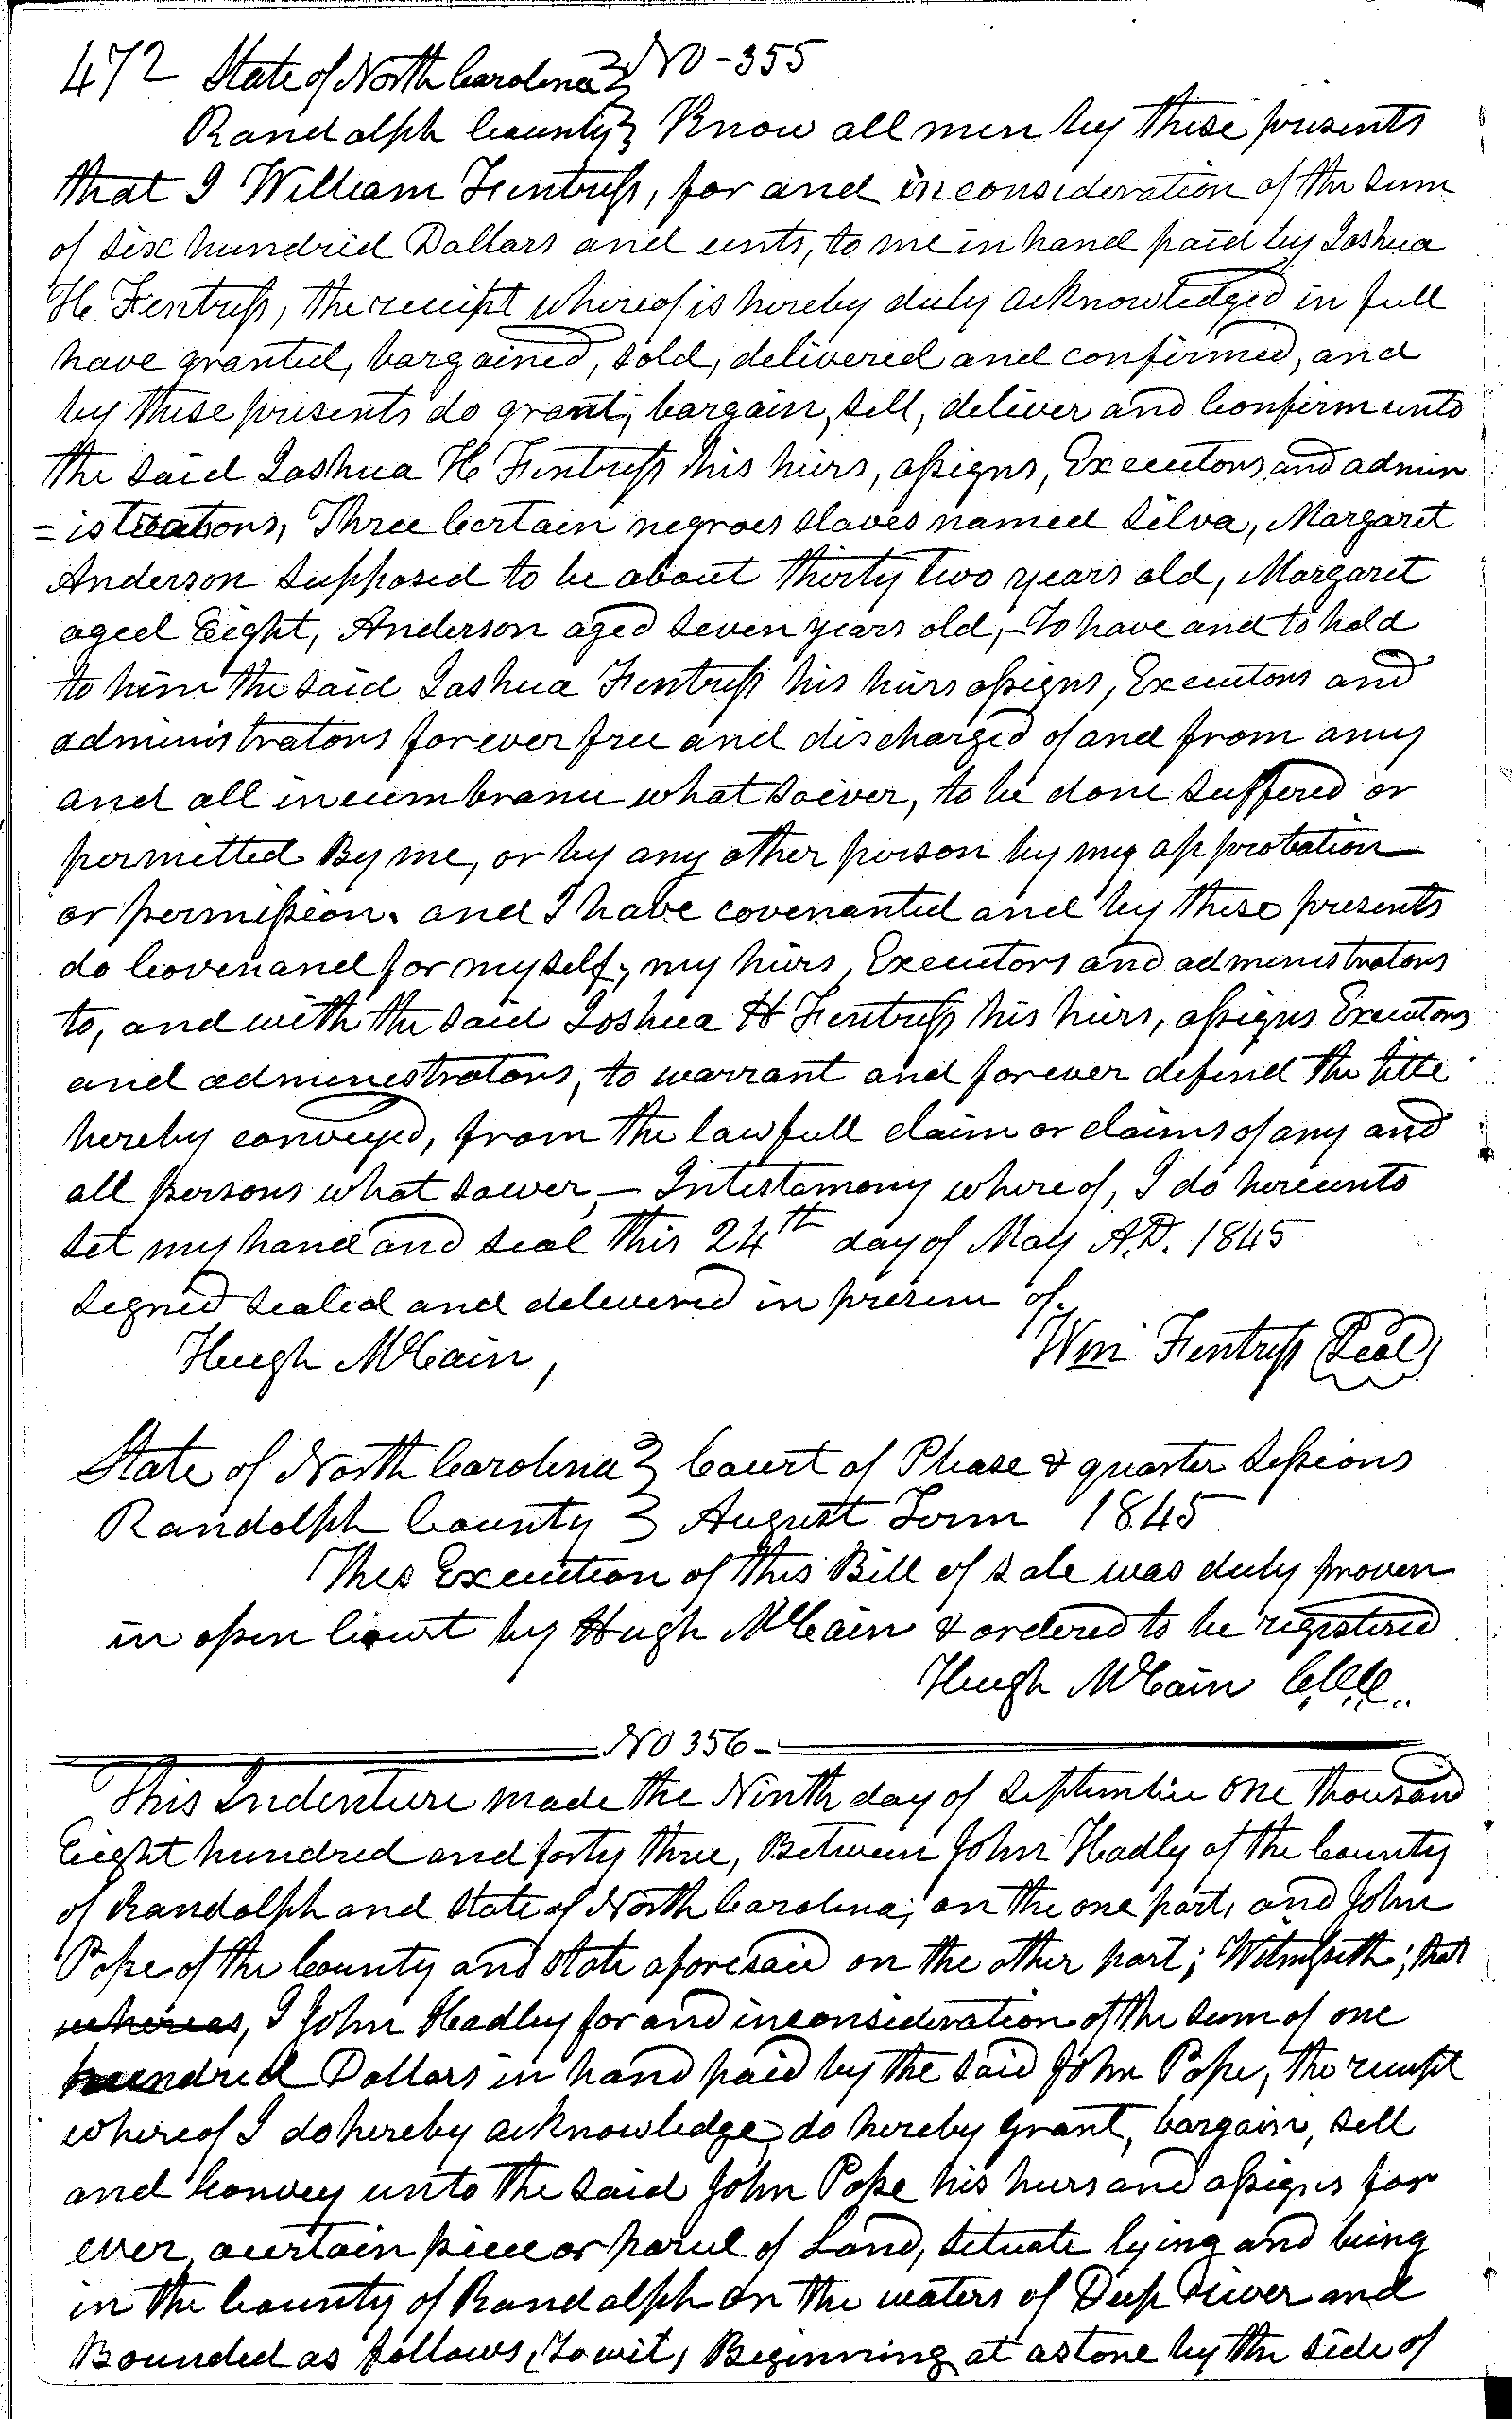 472 State of North Carolina } No - 355
Randolph County } Know all men by these presents
that I William Fentress, for and in consideration of the sum
of six hundred Dollars and cents, to me in hand paid by Joshua
H. Fentress, the receipt whereof is hereby duly acknowledged in full
have granted, bargained, sold, delivered and confirmed, and
by these presents do grant, bargain, sell, deliver and Confirm unto
the said Joshua H Fentress his heirs, assigns, Executors, and admin
= istrators, Three Certain negroes slaves named Silva, Margaret
Anderson supposed to be about thirty two years old, Margaret
aged Eight, Anderson aged seven years old, - To have and to hold
to him the said Joshua Fentress his heirs assigns, Executors and
administrators forever free and discharged of and from any
and all incumbrance what soever, to be done suffered or
permitted By me, or by any other person by my approbation
or permission. and I have covenanted and by these presents
do Covenand for myself, my heirs, Executors and administrators
to, and with the said Joshua H Fentress his heirs, assigns Executors
and administrators, to warrant and forever defend the title
hereby conveyed, from the lawfull claim or claims of any and
all persons what soever, - Intestamony whereof, I do hereunto
set my hand and seal this 24th day of May A.D. 1845
Signed sealed and delivered in presence of.
Hugh McCain, Wm Fentress (Seal)
State of North Carolina } Court of Please & quarter Sessions
Randolph County } August Term 1845
Thes Execution of this Bill of sale was duly proven
in open Court by Hugh McCain & ordered to be registered
Hugh McCain C.C.C..
No 356 -
This Indenture made the Ninth day of September one thousand
Eight hundred and forty three, Between John Hadly of the County
of Randolph and State of North Carolina; on the one part, and John
Pope of the County and State aforesaid on the other part; Witnesseth; that
whereas, I John Hadley for and inconsideration of the sum of one
hundred Dollars in hand paid by the said John Pope, the receipt
whereof I do hereby acknowledge, do hereby grant, bargain, sell
and Convey unto the said John Pope his heirs and assigns for
ever, acertain piece or parcel of Land, situate lying and being
in the County of Randolph on the waters of Deep River and
Bounded as follows, Towit, Beginning at a stone by the side of